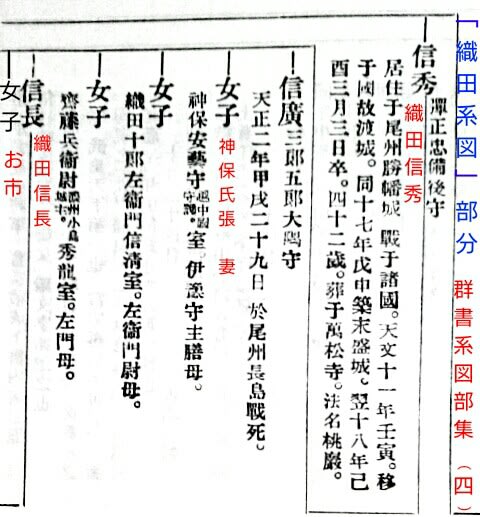 「織田系図」部分 群書系図部集(四)
信秀 彈正忠備後守
織田信秀
居住于尾州勝幡城。戰于諸國。天文十一年壬寅。移
于國故渡城。同十七年戊申築末盛城。翌十八年己
酉三月三日卒。四十二歲。葬于萬松寺。法名桃巖。
信廣 三郎五郎大隅守
天正二年甲戌二十九日 於尾州長島戰死。
女子 神保氏張 妻
神保安藝守 越中國守護。室。伊豫守主膳母。
女子
織田十郎左衞門信清室。左衞門尉母。
女子
齋藤兵衞尉 濃州小島城主。秀龍室。左門母。
信長 織田信長
女子 お市